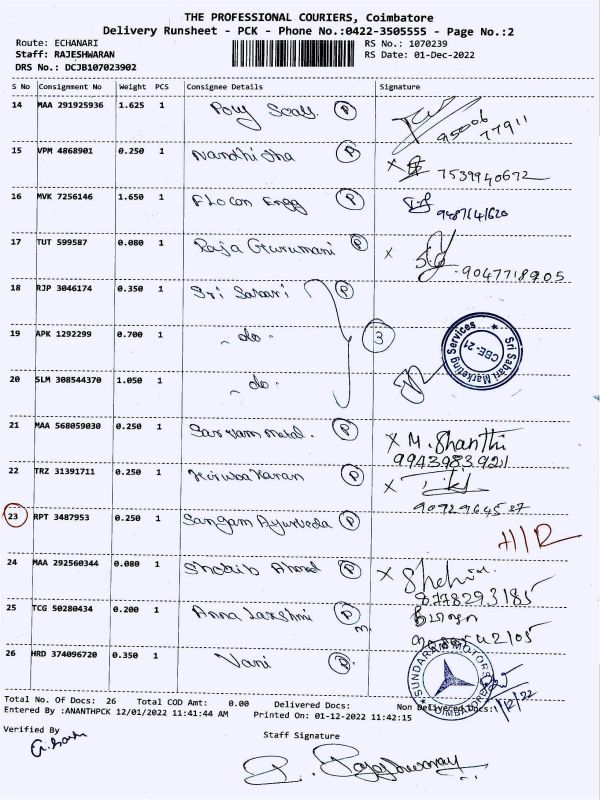 THE PROFESSIONAL COURIERS, Coimbatore
Delivery Runsheet - PCK - Phone No.:0422-3505555 - Page No.:2
Route: ECHANARI RS No.: 1070239
Staff: RAJESHWARAN RS Date: 01-Dec-2022
DRS No.: DCJB107023902
S No Consignment No Weight PCS Consignee Details Signature
14 MAA 291925936 1.625 1 Poly Seals. P
95006
77911
15 VPM 4868901 0.250 1 Nandhitha P X 7539940672
16 MVK 7256146 1.650 1 Flocon Engg P 9487641620
17 TUT 599587 0.080 1 Raja Gurumani P X
9047718905
18 RJP 3046174 0.350 1 Sri Sabari P
19 APK 1292299 0.700 1 - do - 3
Sri Sabari Marketing Services
CBE-21
20 SLM 308544370 1.050 1 - do -
21 MAA 568059030 0.250 1 Sarvam Metal. P X M. Shanthi
9943983921
22 TRZ 31391711 0.250 1 Kirubakaran P X
9092964527
23 RPT 3487953 0.250 1 Sangam Ayurveda P
H/R
24 MAA 292560344 0.080 1 Shobib Ahmed P X
8778293185
25 TCG 50280434 0.200 1 Anna Lakshmi P
m.
26 HRD 374096720 0.350 1 Vani P
SUNDARAM MOTORS
COIMBATORE
1/12/22
Total No. Of Docs: 26 Total COD Amt: 0.00 Delivered Docs: Non Delivered Docs:
Entered By :ANANTHPCK 12/01/2022 11:41:44 AM Printed On: 01-12-2022 11:42:15
Verified By Staff Signature